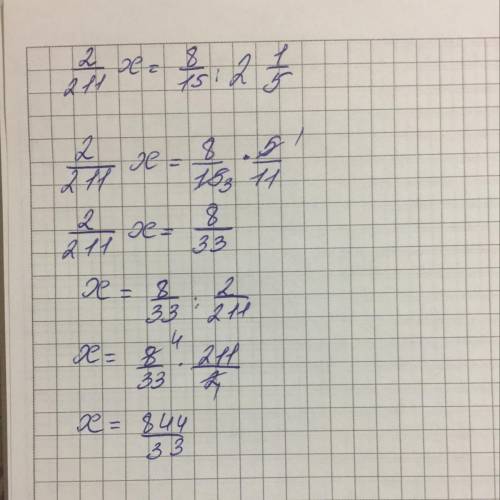 2/211 x = 8/15 : 2 1/5
2/211 x = 8/15 3 · 5/11 1
2/211 x = 8/33
x = 8/33 : 2/211
x = 8/33 4 · 211/2 1
x = 844/33